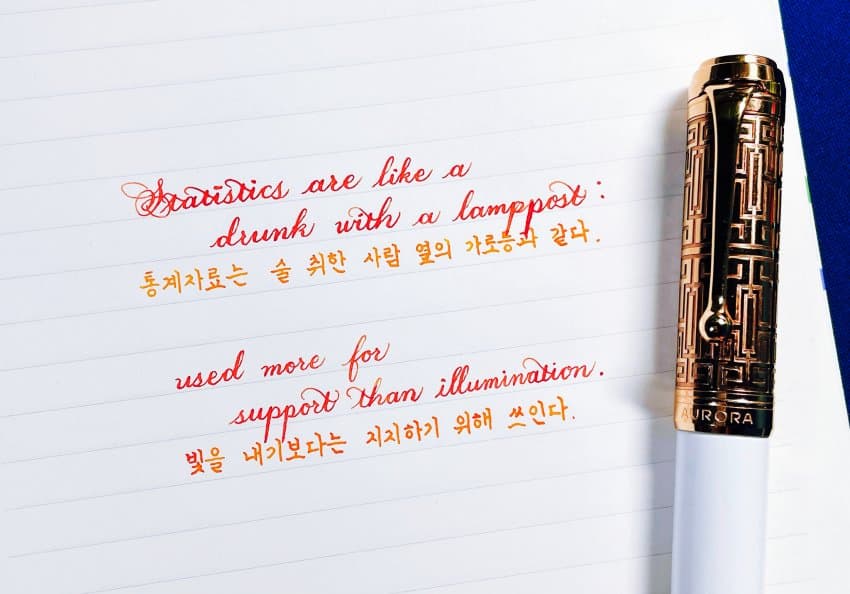 Statistics are like a
drunk with a lamppost:
통계자료는 술 취한 사람 옆의 가로등과 같다.
used more for
support than illumination.
빛을 내기보다는 지지하기 위해 쓰인다.
AURORA